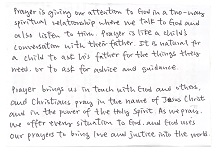 Prayer is giving our attention to God in a two-way
spiritual relationship where we talk to God and
also listen to Him. Prayer is like a child's
conversation with their father. It is natural for
a child to ask his father for the things they
need, or to ask for advice and guidance.
Prayer brings us in touch with God and others,
and Christians pray in the name of Jesus Christ
and in the power of the Holy Spirit. As we pray,
we offer every situation to God, and God uses
our prayers to bring love and justice into the world.